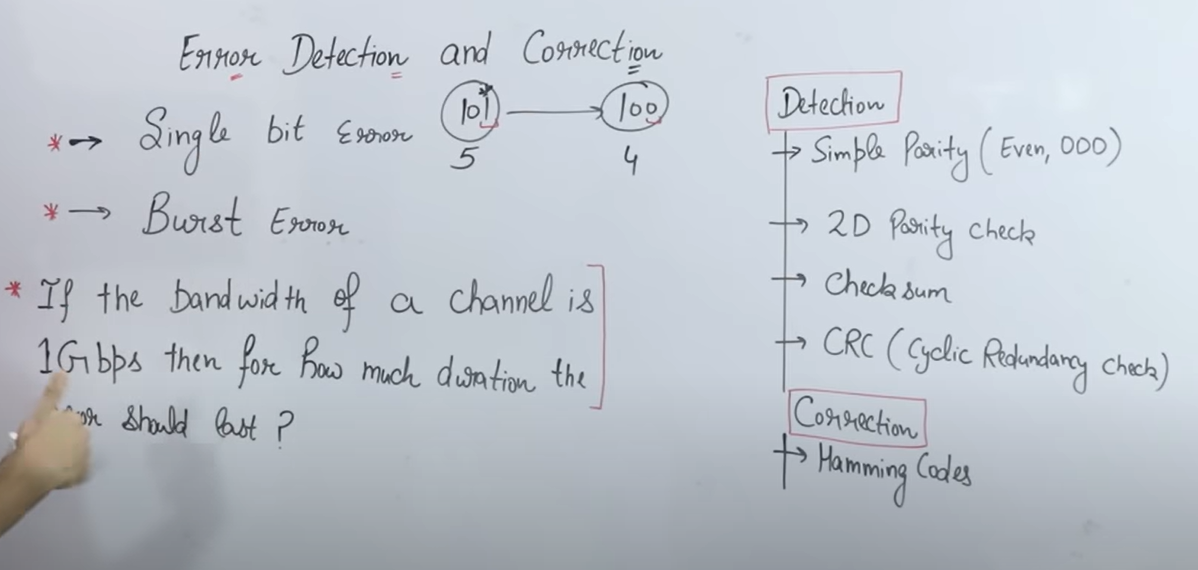 Error Detection and Correction
* → Single bit Error 101 → 100
5 4
* → Burst Error
* If the bandwidth of a channel is
1Gbps then for how much duration the
should last ?
Detection
→ Simple Parity (Even, ODD)
→ 2D Parity check
→ Checksum
→ CRC (Cyclic Redundancy Check)
Correction
→ Hamming Codes